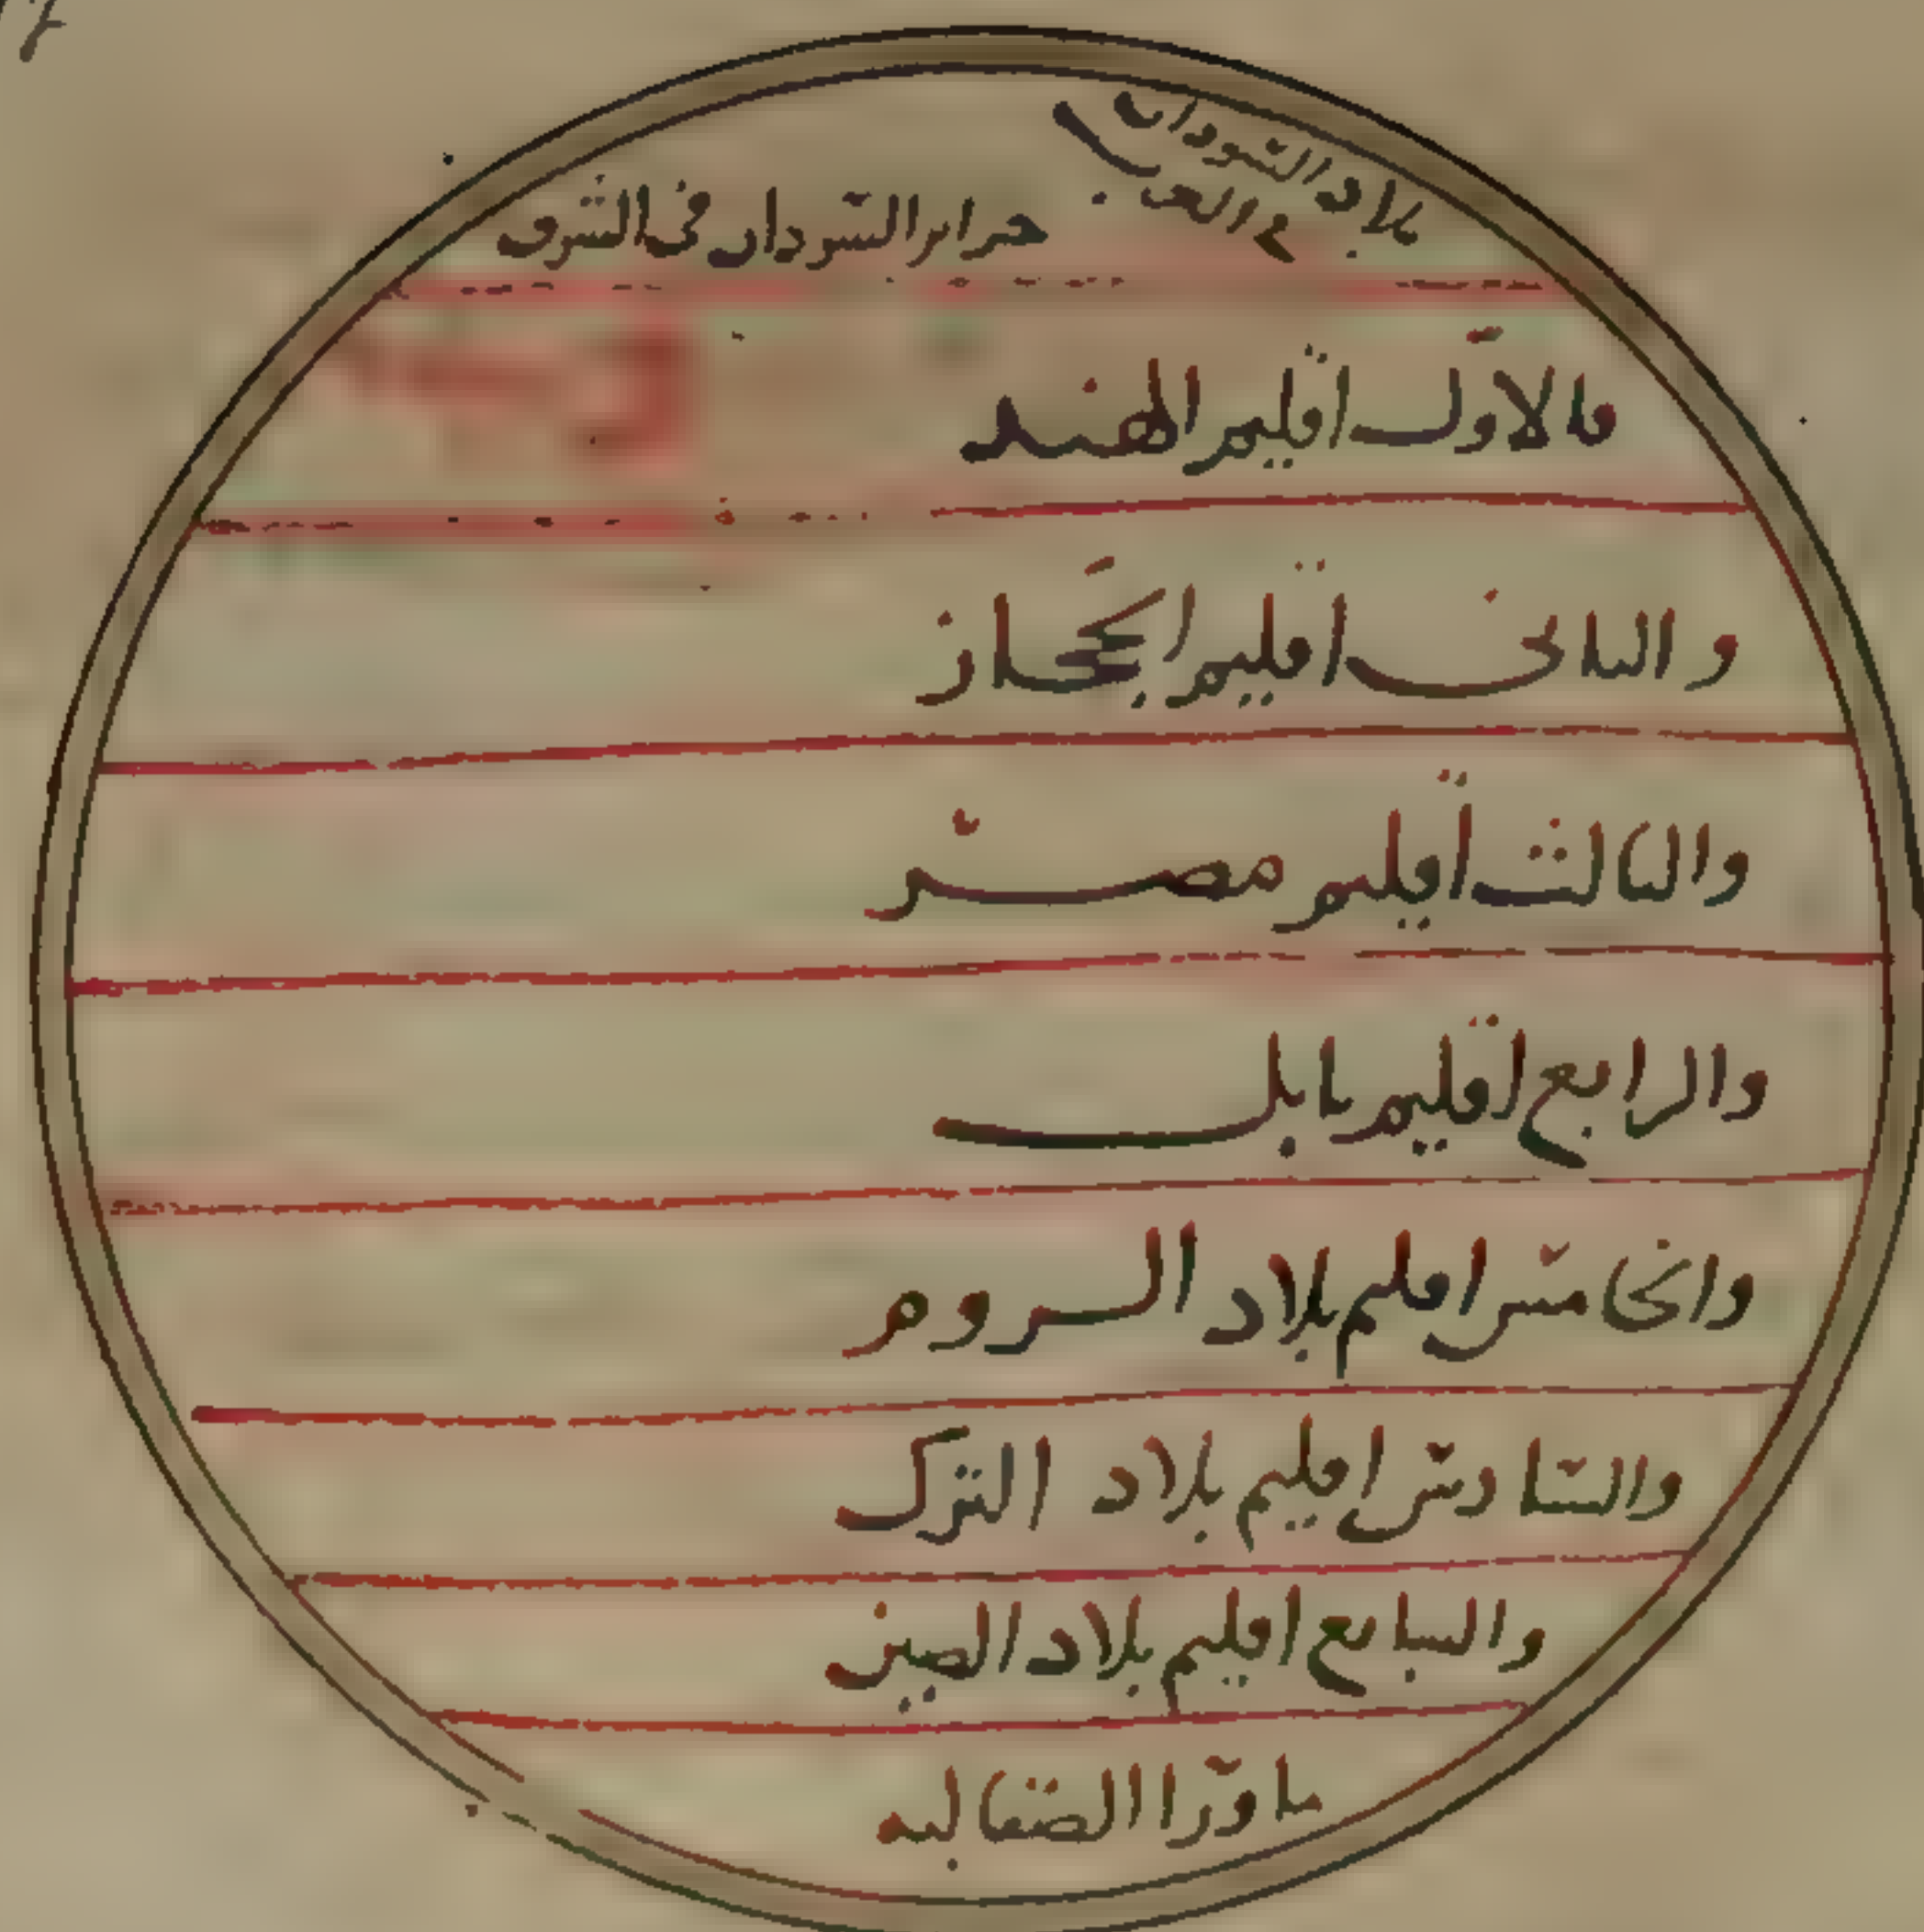 بلاد السودان
في الغرب
جزاير السودان في الشرق
فالاول اقليم الهند
والثاني اقليم الحجاز
والثالث اقليم مصر
والرابع اقليم بابل
والخامس اقليم بلاد الروم
والسادس اقليم بلاد الترك
والسابع اقليم بلاد الصين
ما ورا الصقالبه